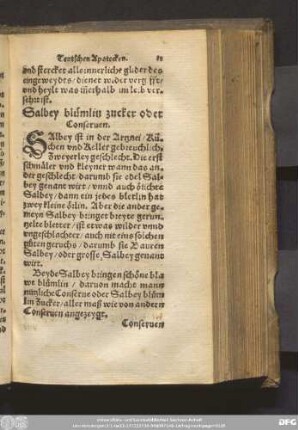 Teutschen Apotecken.
vnd stercket alle innerliche glider des
eingeweydts / dienet wider vergifft /
vnd heylt was inerhalb im leib ver-
sehrt ist.
Salbey blümlin zucker oder
Conseruen.
SAlbey ist in der Artznei / Kü-
chen vnd Keller gebreuchlich,
zweyerley geschlecht. Die erst
schmäler vnd kleyner wann das an-
der geschlecht darumb sie edel Sal-
bey genant wirt / vnnd auch örichte
Salbey / dann ein jedes bletlin hat
zwey kleine örlin. Aber die ander ge-
meyn Salbey bringet breyter gerun-
tzelte bletter / ist etwas wilder vnnd
vngeschlachter / auch nit eins solchen
guten geruchs / darumb sie Bauren
Salbey / oder grosse Salbey genand
wirt.
Beyde Salbey bringen schöne bla
we blümlin / daruon macht mann
nützliche Conserue oder Salbey blüm
lin zucker / aller maß wie von andern
Conseruen angezeygt.
Conseruen